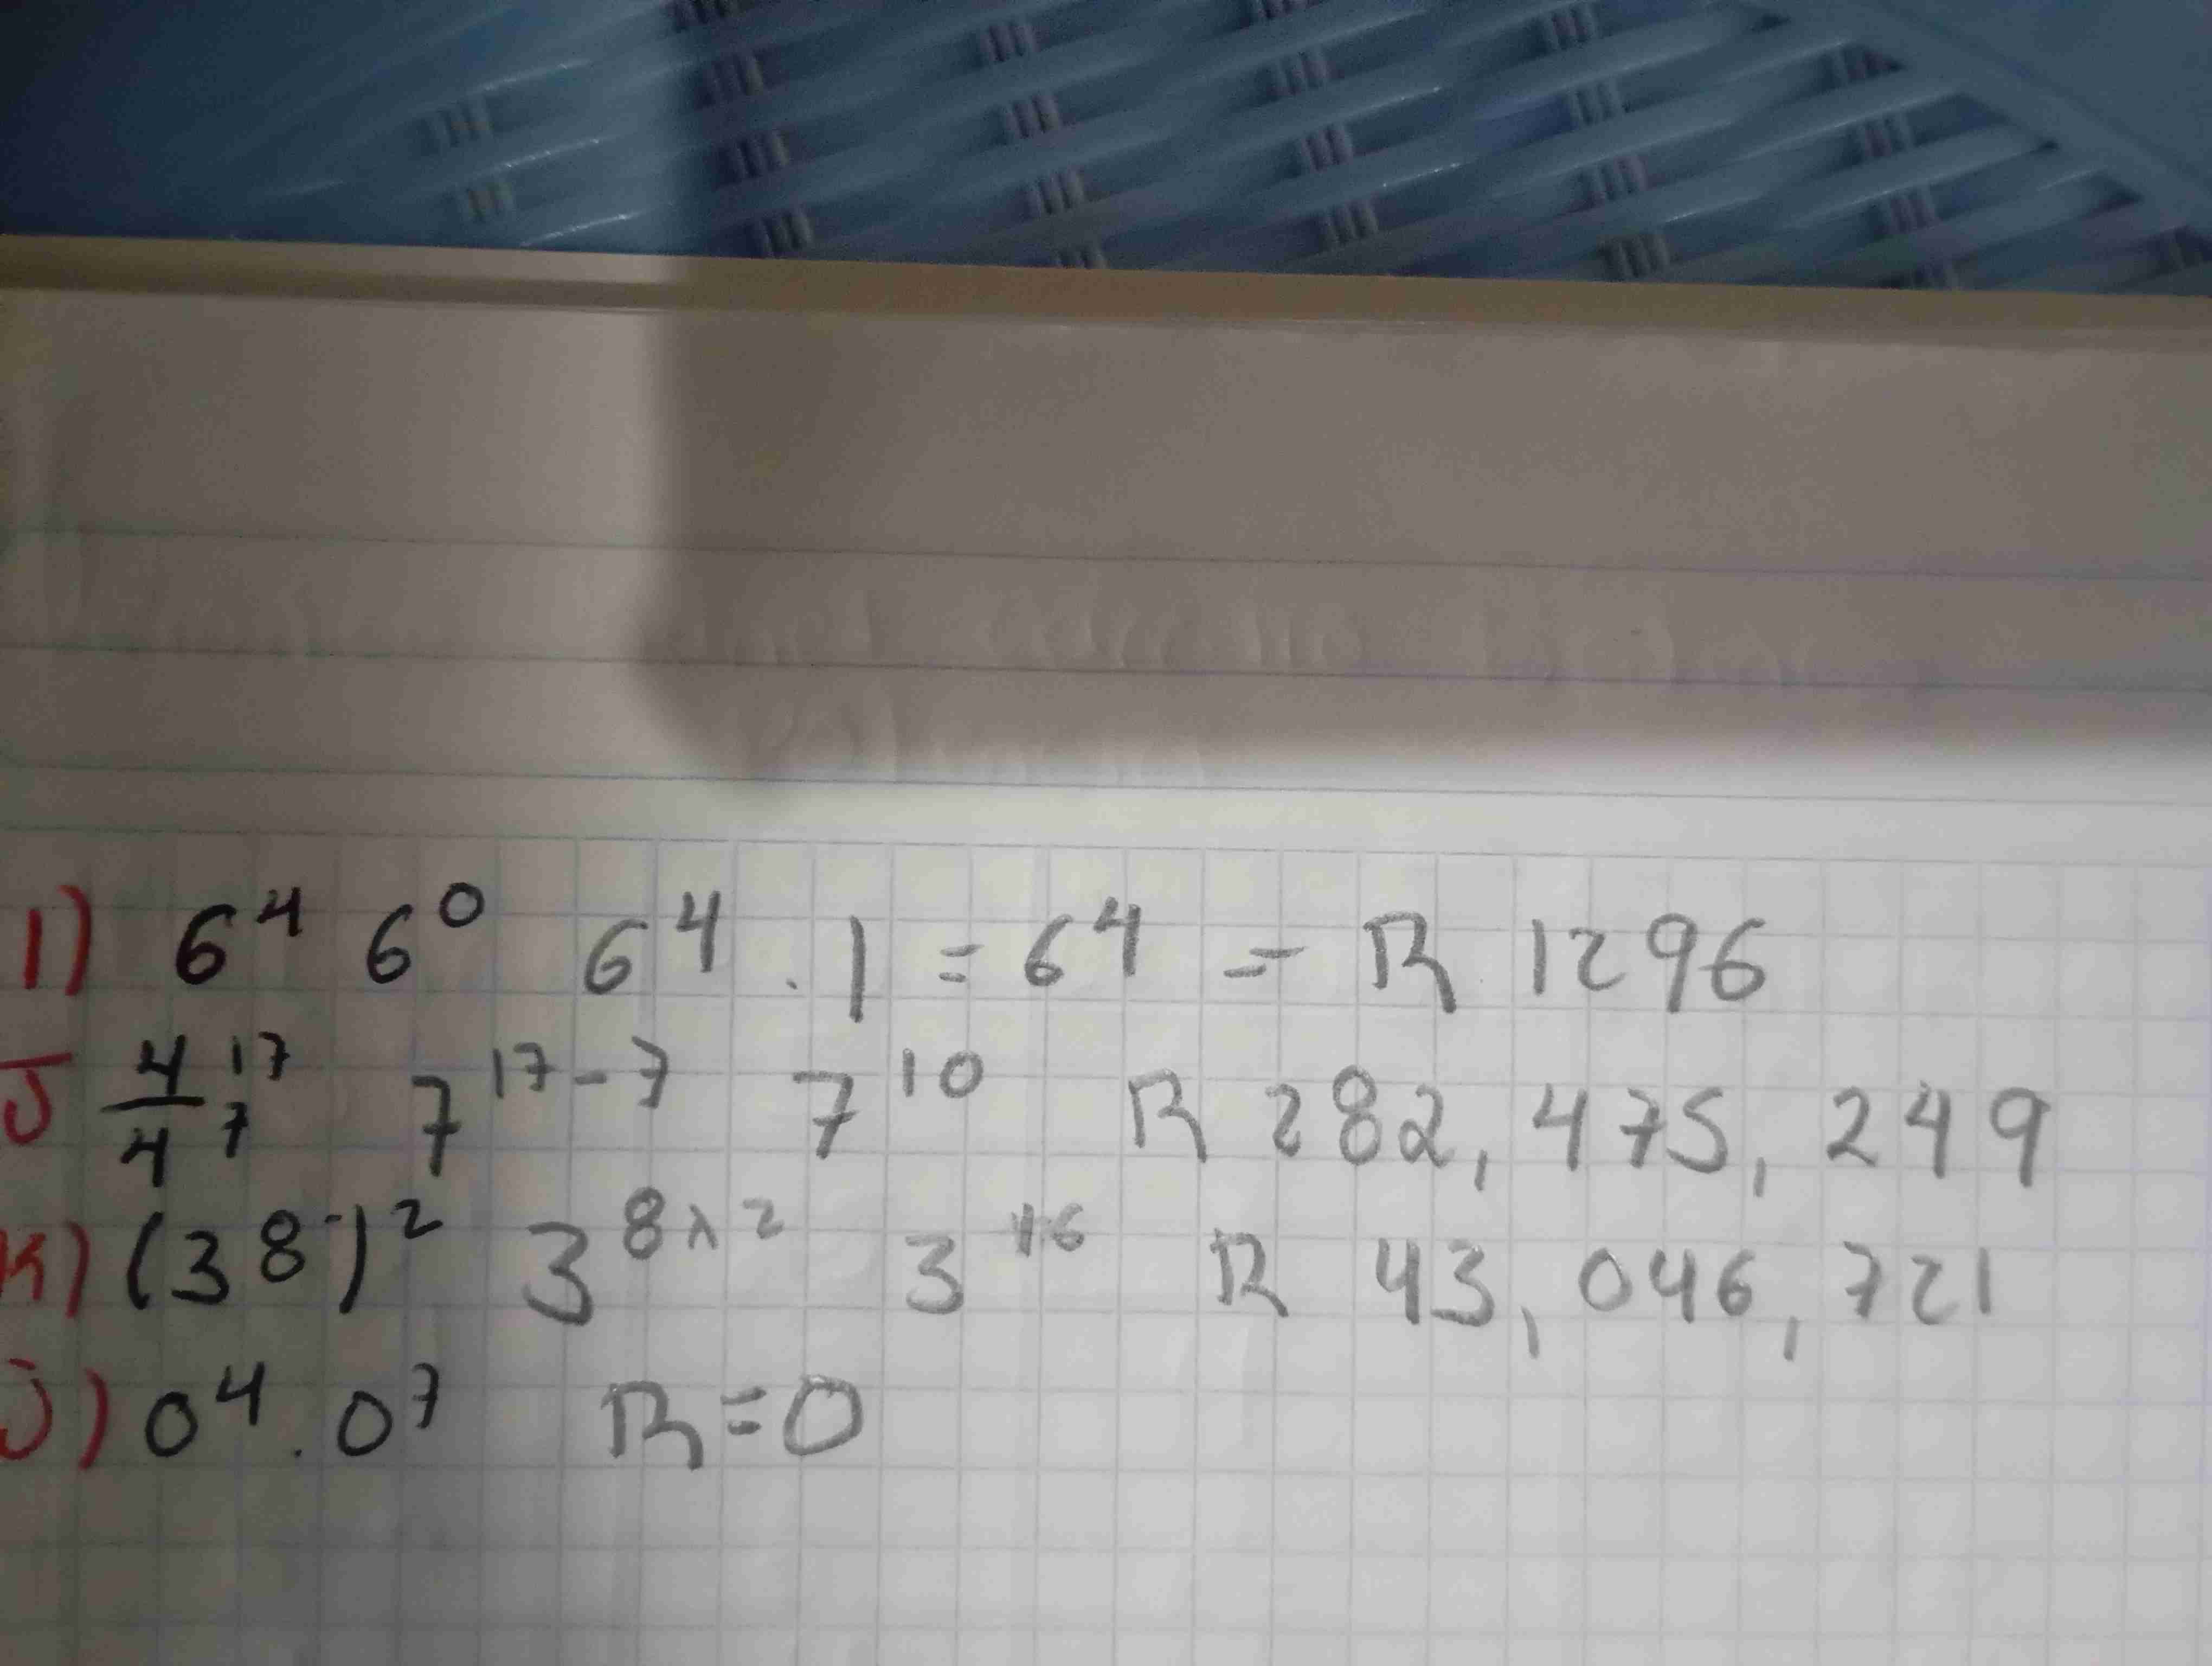 I) 6⁴ 6⁰ 6⁴ . 1 = 6⁴ = R 1296
J 4¹⁷/4⁷ 7¹⁷⁻⁷ 7¹⁰ R 282,475,249
K) (38)² 3⁸ˣ² 3¹⁶ R 43,046,721
J) 0⁴ . 0⁷ R=0